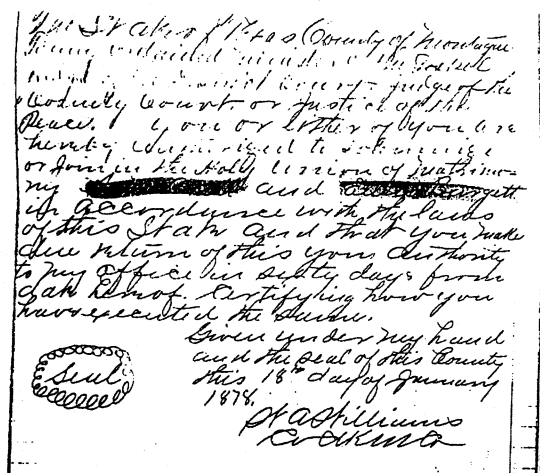 The State of Texas County of Montague
To any ordained minister of the Gospel
Judge of the District Court Judge of the
County Court or Justice of the
Peace. You or either of you are
hereby to solemnize
or Join in the Holy Union of Matrimo-
ny and
in accordance with the laws
of this State and that you make
due return of this your authority
to my office in sixty days from
date hereof. Certifying how you
have executed the same.
Given under my hand
and the seal of this County
this 18th day of January
1878.
Seal
Williams